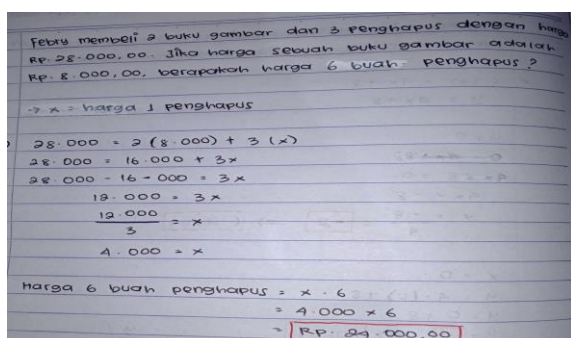 Febry membeli 2 buku gambar dan 3 penghapus dengan harga
Rp. 28.000,00. Jika harga sebuah buku gambar adalah
Rp. 8.000,00, berapakah harga 6 buah penghapus?
→ x = harga 1 penghapus
28.000 = 2 (8.000) + 3 (x)
28.000 = 16.000 + 3x
28.000 - 16-000 = 3x
12.000 = 3x
12.000
3
= x
4.000 = x
Harga 6 buah penghapus = x . 6
= 4.000 x 6
= Rp. 24.000,00